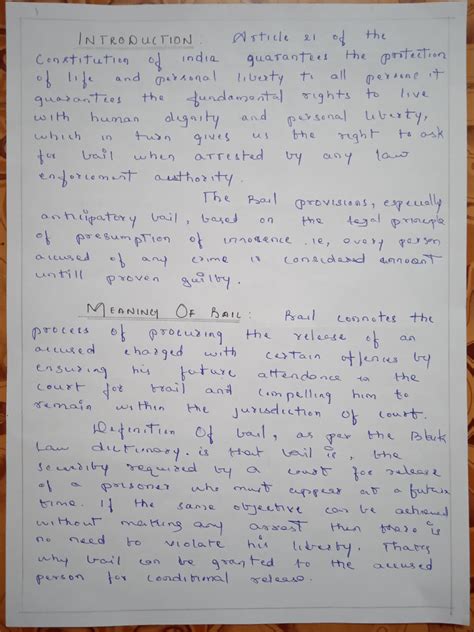 INTRODUCTION : Article 21 of the
Constitution of india guarantees the protection
of life and personal liberty to all persons it
guarantees the fundamental rights to live
with human dignity and personal liberty,
which in turn gives us the right to ask
for bail when arrested by any law
enforcement authority.
The Bail provisions, especially
anticipatory bail, based on the legal principle
of presumption of innosence. ie, every person
accused of any crime is considered
untill proven guilby.
MEANING OF BAIL : Bail connotes the
process of procuring the release of an
accused charged with certain offences by
ensuring his future attendance in the
court for trail and compelling him to
remain within the jurisdiction of court.
Definition Of bail, as per the Black
Law dictionary. is that bail is, the
security required by a court for release
of a prisoner who must appear at a future
time. If the same objective can be achieved
without making any arrest then there is
no need to violate his liberty. Thats
why bail can be granted to the accused
person for conditional release.